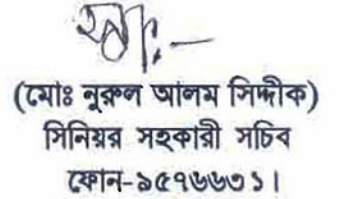 স্বাঃ-
(মোঃ নুরুল আলম সিদ্দীক)
সিনিয়র সহকারী সচিব
ফোন-৯৫৭৬৬৩১।